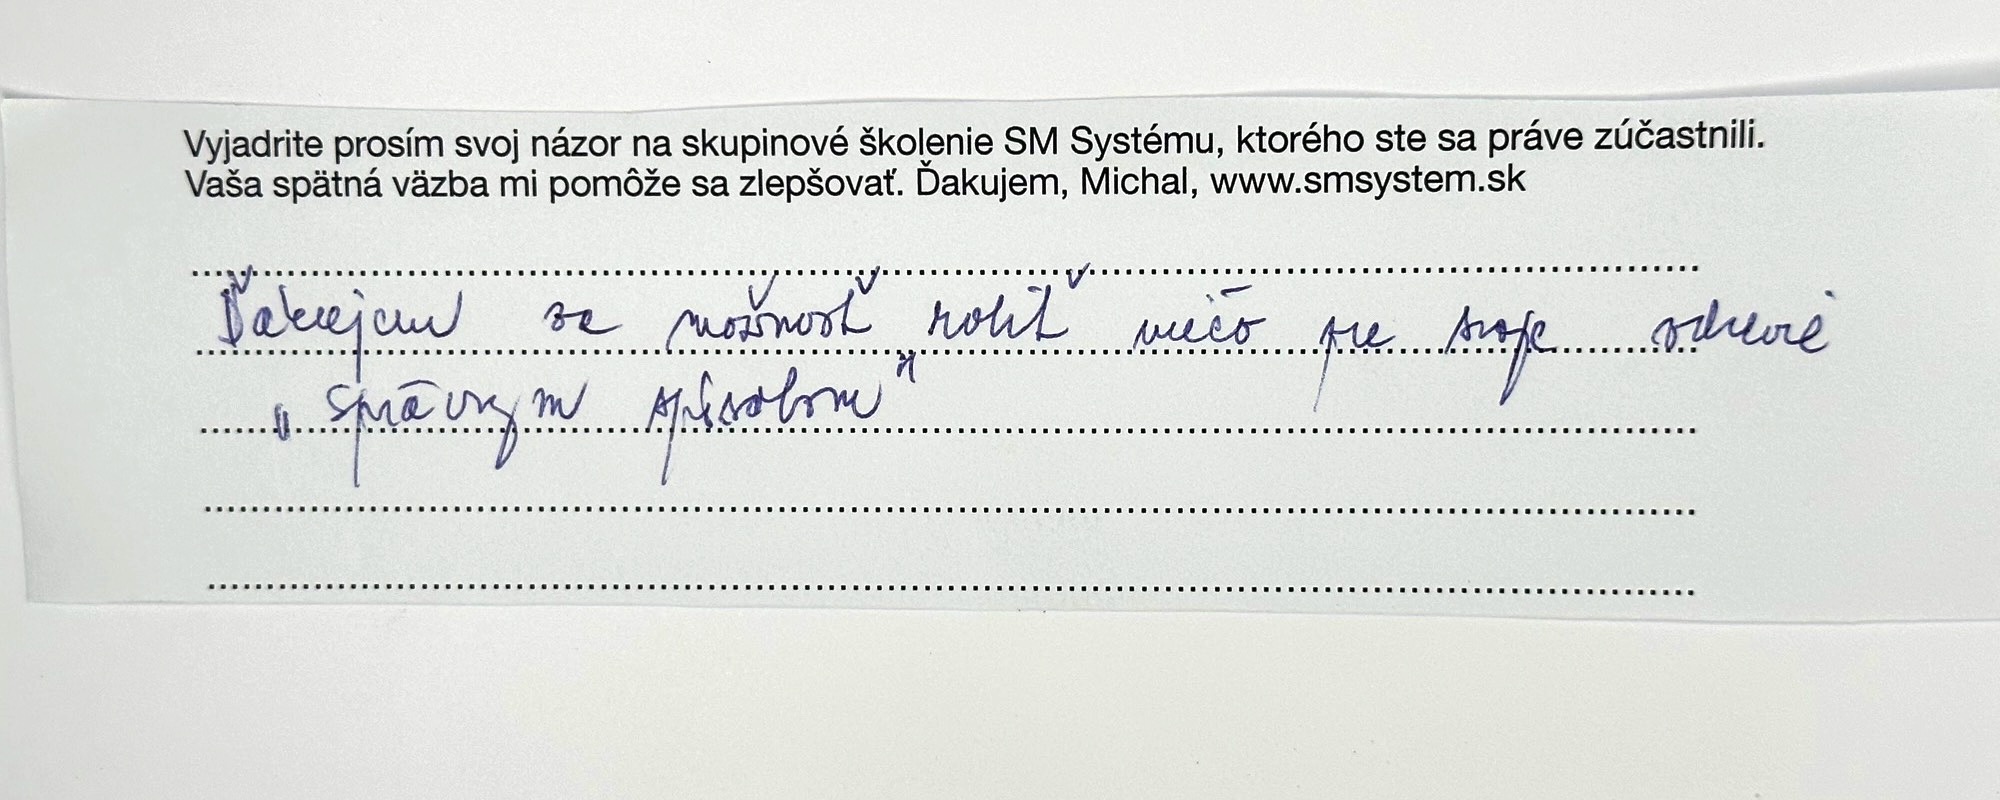 Vyjadrite prosím svoj názor na skupinové školenie SM Systému, ktorého ste sa práve zúčastnili.
Vaša spätná väzba mi pomôže sa zlepšovať. Ďakujem, Michal, www.smsystem.sk
Ďakujem za možnosť robiť niečo pre svoje zdravie
„správnym spôsobom"